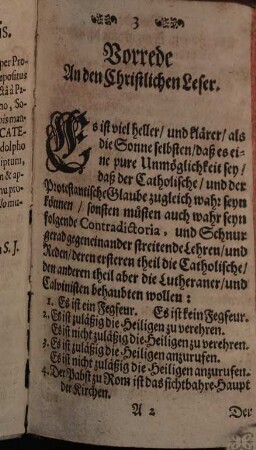 3
Vorrede
An den Christlichen Leser.
ES ist viel heller / und klärer / als
die Sonne selbsten / daß es ei-
ne pure Unmöglichkeit sey /
daß der Catholische / und der
Protestantische Glaube zugleich wahr seyn
können / sonsten müsten auch wahr seyn
folgende Contradictoria, und Schnur
gerad gegeneinander streitende Lehren / und
Reden / deren ersteren theil die Catholische /
den anderen theil aber die Lutheraner / und
Calvinisten behaubten wollen :
1. Es ist ein Fegfeur. Es ist kein Fegfeur.
2. Es ist zuläßig die Heiligen zu verehren.
Es ist nicht zuläßig die Heiligen zu verehren.
3. Es ist zuläßig die Heiligen anzurufen.
Es ist nicht zuläßig die Heiligen anzurufen.
4. Der Pabst zu Rom ist das sichtbahre Haupt
der Kirchen.
A 2 Der
IS.
per Pro-
epositus
CATE-
dolpho
iptum,
n & ap-
nu pro-
S. J.